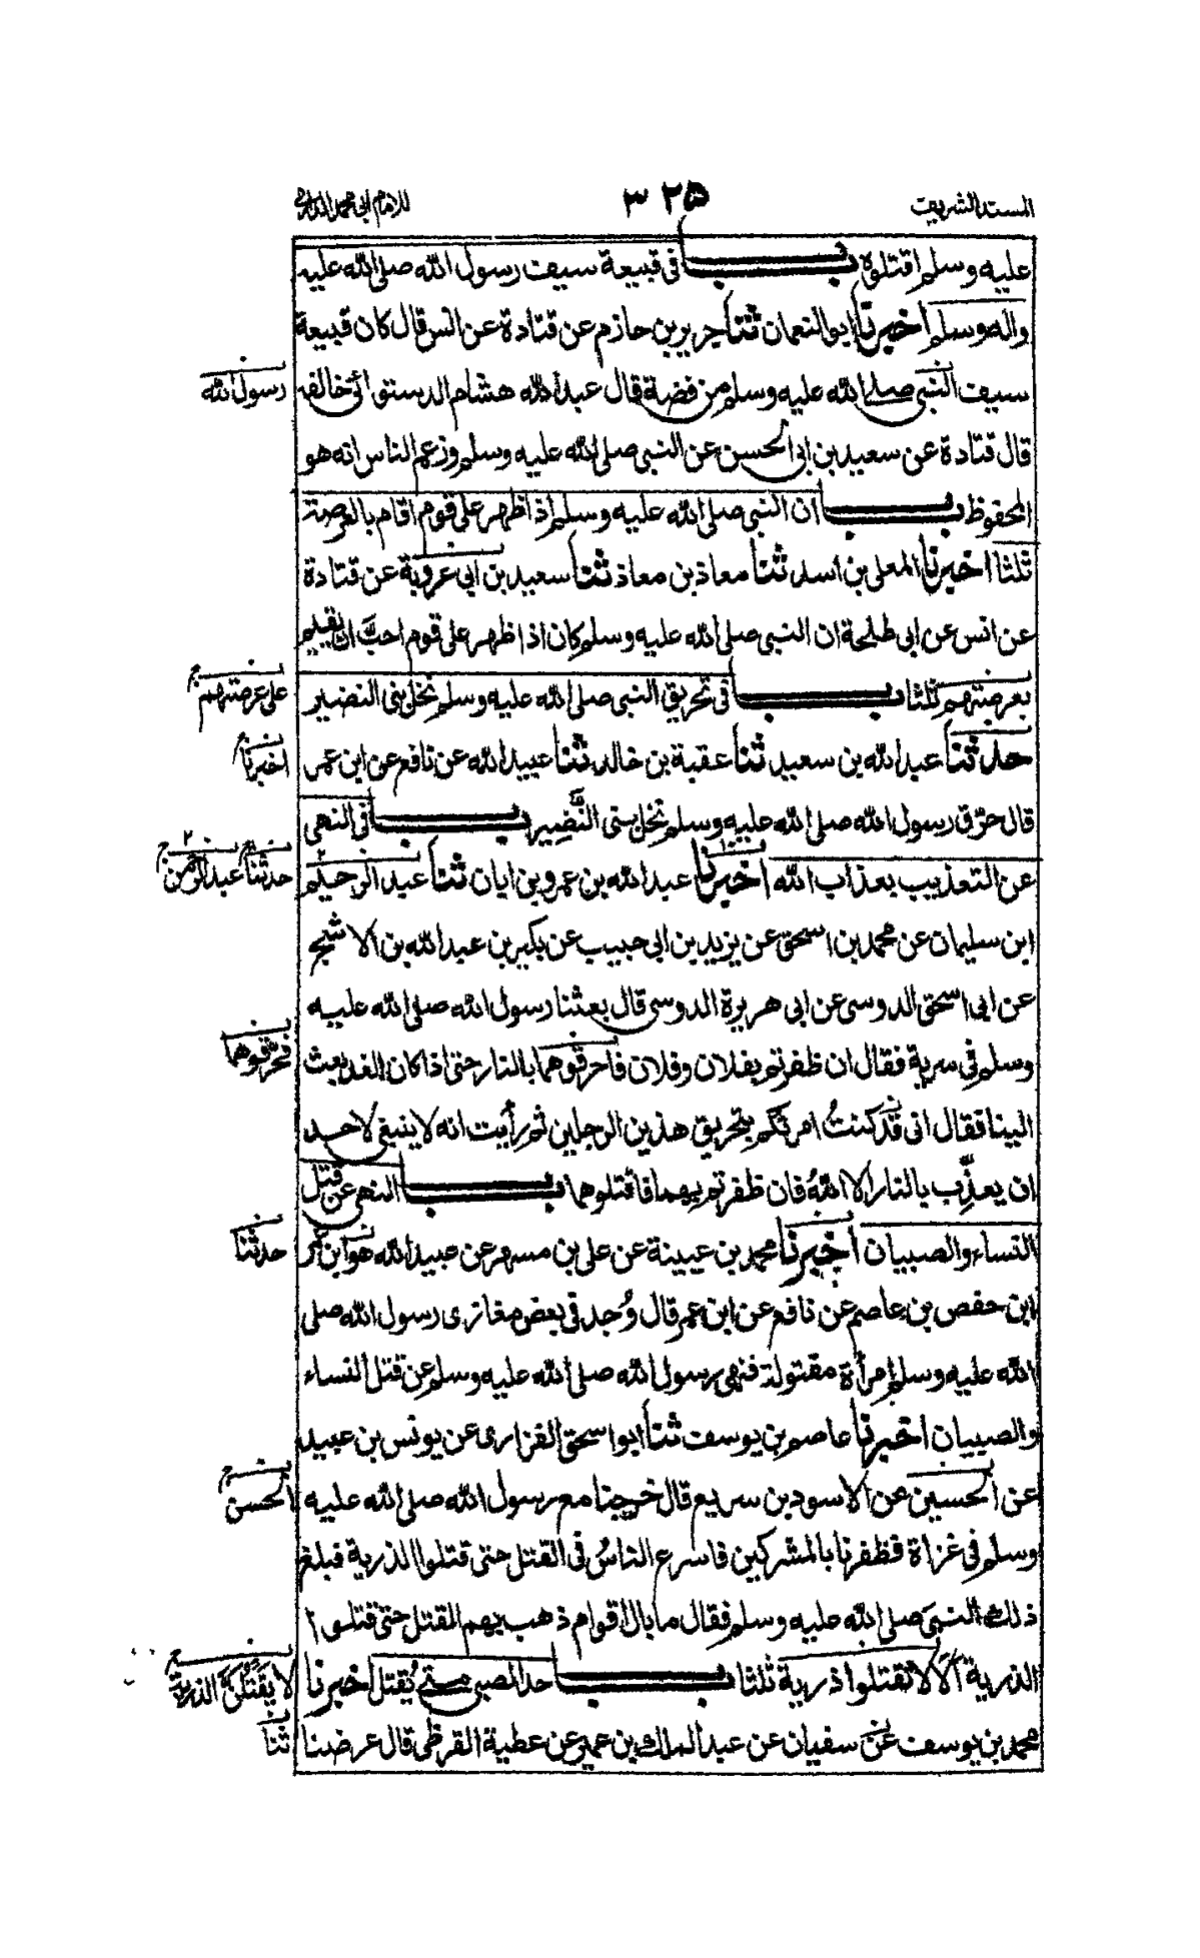 المسند الشريف
٣٢٥
للامام ابى محمد الدارمى
عليه وسلم اقتلوه باب فى قبيعة سيف رسول الله صلى الله عليه
واله وسلم اخبرنا ابو النعمان ثنا جرير بن حازم عن قتادة عن انس قال كان قبيعة
سيف النبى صلى الله عليه وسلم من فضة قال عبد الله هشام الدستوائى خالفه
رسول الله
قال قتادة عن سعيد بن ابى الحسن عن النبى صلى الله عليه وسلم وزعم الناس انه هو
المحفوظ باب ان النبى صلى الله عليه وسلم اذا ظهر على قوم اقام بالعرصة
ثلثا اخبرنا المعلى بن اسد ثنا معاذ بن معاذ ثنا سعيد بن ابى عروبة عن قتادة
عن انس عن ابى طلحة ان النبى صلى الله عليه وسلم كان اذا ظهر على قوم احبَّ ان يقيم
بعرصتهم ثلثا باب فى تحريق النبى صلى الله عليه وسلم نخل بنى النضير
على عرصتهم
حدثنا عبد الله بن سعيد ثنا عقبة بن خالد ثنا عبيد الله عن نافع عن ابن عمر
اخبرنا
قال حرّق رسول الله صلى الله عليه وسلم نخل بنى النَّضِير باب فى النهى
عن التعذيب بعذاب الله اخبرنا عبد الله بن عمرو بن ابان ثنا عبد الرحيم
حدثنا عبد الرحمن
ابن سليمان عن محمد بن اسحق عن يزيد بن ابى حبيب عن بكير بن عبد الله بن الاشج
عن ابى اسحق الدوسى عن ابى هريرة الدوسى قال بعثنا رسول الله صلى الله عليه
وسلم فى سرية فقال ان ظفرتم بفلان وفلان فاحرقوهما بالنار حتى اذا كان الغد بعث
فحرّقوهما
الينا فقال انى قد كنتُ امرتكم بتحريق هذين الرجلين ثم رأيت انه لا ينبغى لاحد
ان يعذِّب بالنار الا اللهُ فان ظفرتم بهما فاقتلوهما باب النهى عن قتل
النساء والصبيان اخبرنا محمد بن عيينة عن على بن مسهر عن عبيد الله هو ابن عمر
حدثنا
ابن حفص بن عاصم عن نافع عن ابن عمر قال وُجد فى بعض مغازى رسول الله صلى
الله عليه وسلم امرأة مقتولة فنهى رسول الله صلى الله عليه وسلم عن قتل النساء
والصبيان اخبرنا عاصم بن يوسف ثنا ابو اسحق الفزارى عن يونس بن عبيد
عن الحسين عن الاسود بن سريع قال خرجنا مع رسول الله صلى الله عليه
الحسن
وسلم فى غزاة فظفرنا بالمشركين فاسرع الناسُ فى القتل حتى قتلوا الذرية فبلغ
ذلك النبىَ صلى الله عليه وسلم فقال ما بال اقوام ذهب بهم القتل حتى قتلوا
الذرية الَا لا تقتلوا ذرية ثلثا باب حد الصبى متى يُقتل اخبرنا
لا يَقْتُلَنَّ الذرية
محمد بن يوسف عن سفيان عن عبد الملك بن عمير عن عطية القرظى قال عرضنا
ثنا